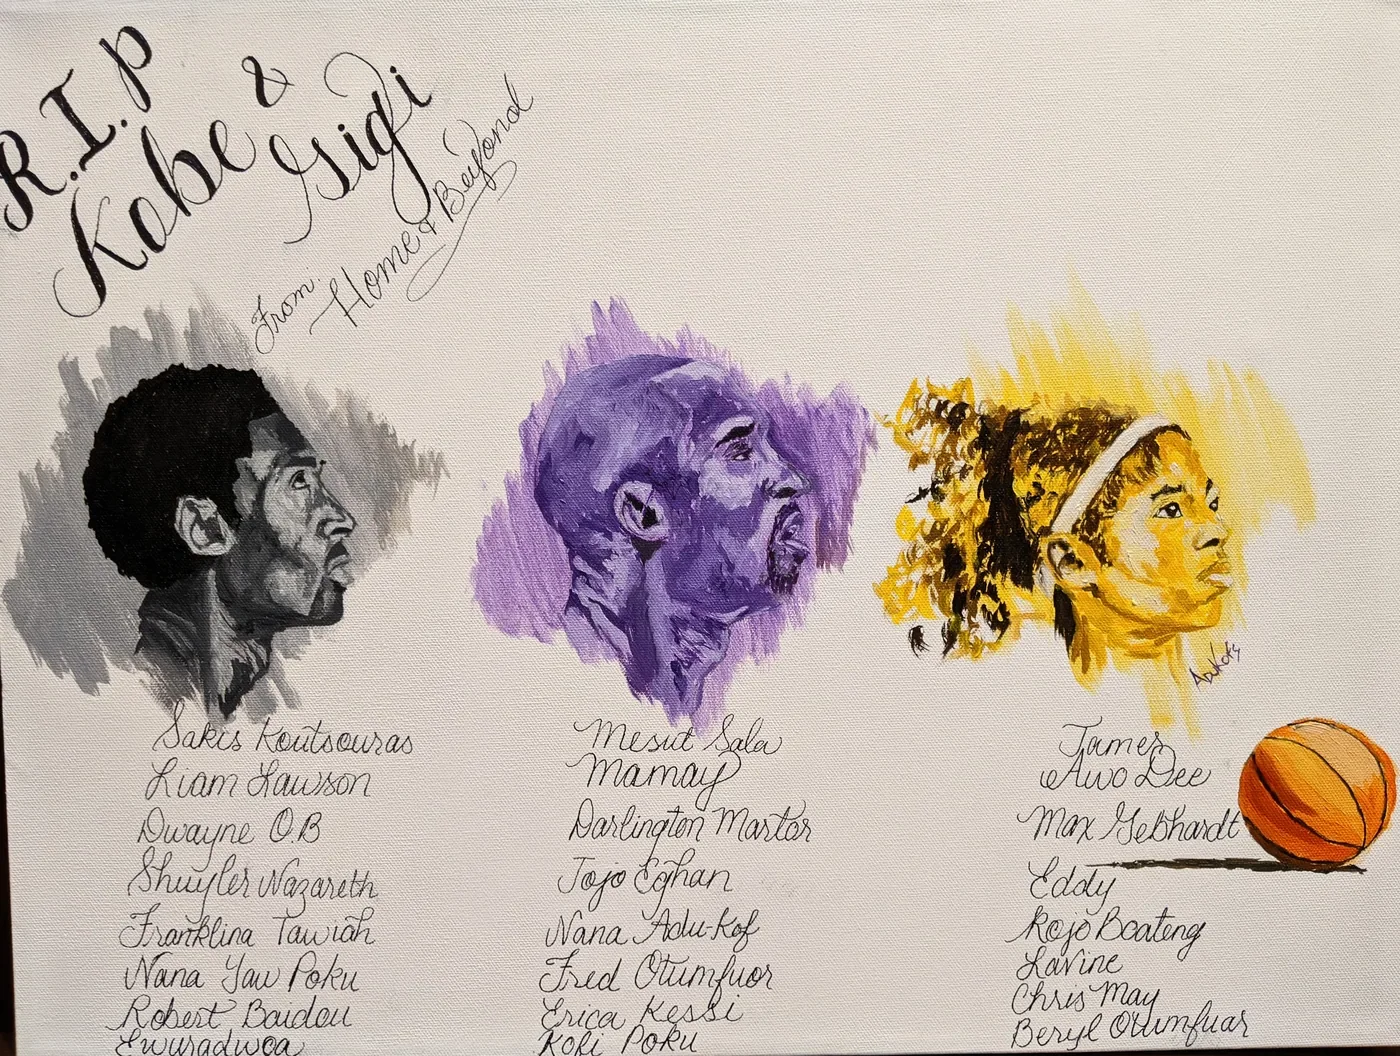 R.I.P
Kobe & Gigi
From: Home & Beyond
AduKofs
Sakis Koutsouras
Liam Lawson
Dwayne O.B
Shuyler Nazareth
Franklina Tawiah
Nana Yaw Poku
Robert Baidou
Ewuradwoa
Mesut Sala
Mamay
Darlington Martor
Jojo Eghan
Nana Adu-Kof
Fred Otumfuor
Erica Kessi
Kofi Poku
James
Awo Dee
Max Gebhardt
Eddy
Kojo Boateng
LaVine
Chris May
Beryl Otumfuor